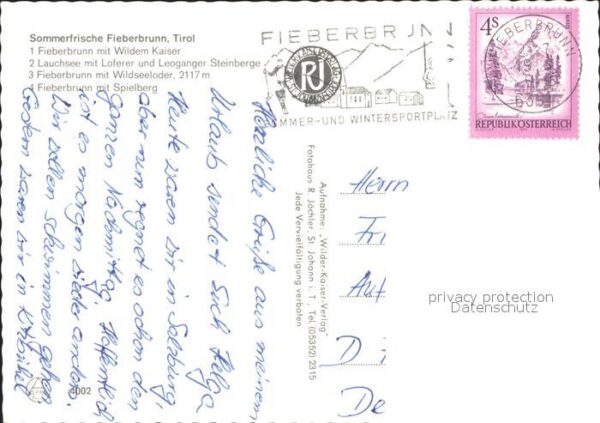 Sommerfrische Fieberbrunn, Tirol
1 Fieberbrunn mit Wildem Kaiser
2 Lauchsee mit Loferer und Leoganger Steinberge
3 Fieberbrunn mit Wildseeloder, 2117 m
4 Fieberbrunn mit Spielberg
FIEBERBRUNN
SOMMER- UND WINTERSPORTPLATZ
FIEBERBRUNN
4S
REPUBLIK ÖSTERREICH
Herzliche Grüße aus meinem
Urlaub sendet Euch Helga
Heute waren wir in Salzburg,
aber nun regnet es schon den
ganzen Nachmittag. Hoffentlich
ist es morgen wieder anders.
Wir wollen schwimmen gehen
waren wir in Kitzbühel
Aufnahme: „Wilder-Kaiser-Verlag"
Fotohaus R. Jöchler, St. Johann i. T., Tel. (05352) 2315
Jede Vervielfältigung verboten
Herrn
Fri
Auf
D
De
privacy protection
Datenschutz
4002